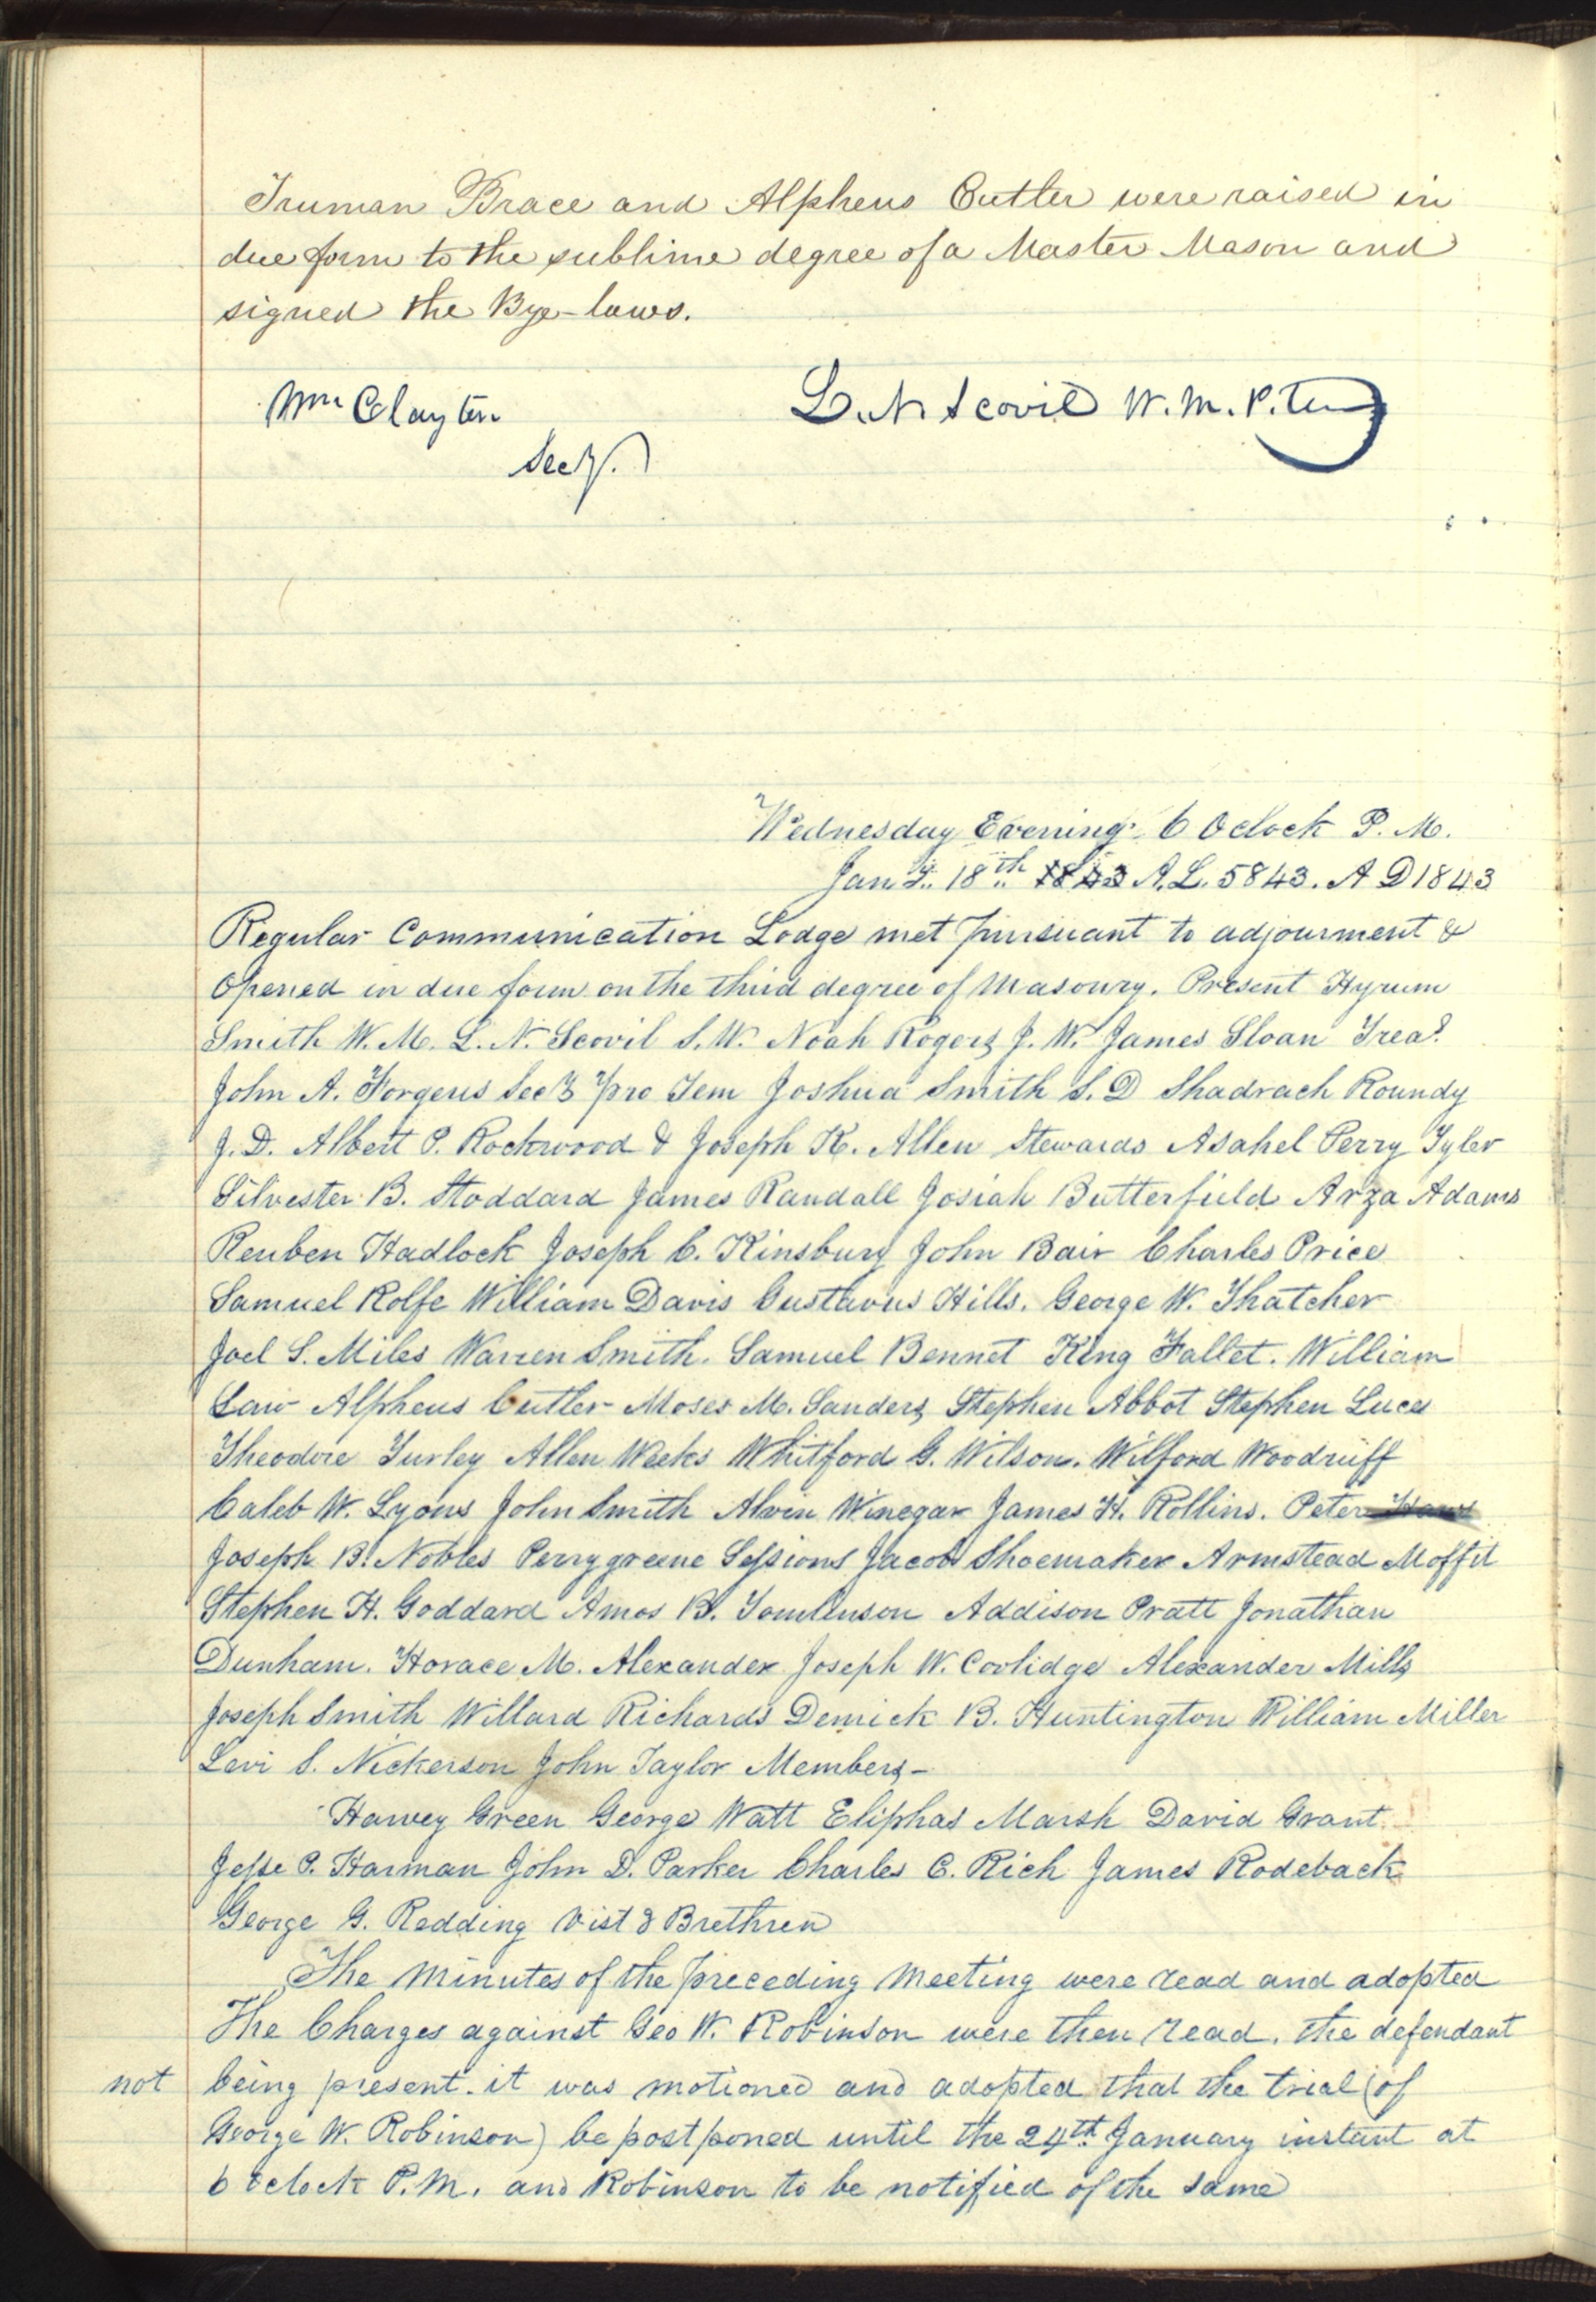 Truman Brace and Alpheus Cutler were raised in
due form to the sublime degree of a Master Mason and
signed the Bye-laws.
Wm Clayton
L. N. Scovil W. M. P. Tem
Secy.
Wednesday Evening 6 Oclock P. M.
Jany. 18th 1843 A. L. 5843. A D 1843
Regular Communication Lodge met pursuant to adjourment &
Opened in due form on the third degree of Masonry. Present Hyrum
Smith W. M. L. N. Scovil S. W. Noah Rogers J. W. James Sloan Trea
John A. Forgeus Secy pro Tem Joshua Smith S. D Shadrach Roundy
J. D. Albert P. Rockwood & Joseph K. Allen Stewards Asahel Perry Tyler
Silvester B. Stoddard James Randall Josiah Butterfield Arza Adams
Reuben Hadlock Joseph C. Kinsbury John Bair Charles Price
Samuel Rolfe William Davis Gustavus Hills. George W. Thatcher
Joel S. Miles Warren Smith. Samuel Bennet King Fallet. William
Law Alpheus Cutler Moses M. Sanders Stephen Abbot Stephen Luce
Theodore Turley Allen Weeks Whitford G. Wilson. Wilford Woodruff
Caleb W. Lyons John Smith Alvin Winegar James H. Rollins. Peter Haws
Joseph B. Nobles Perrygreene Sessions Jacob Shoemaker Armstead Moffit
Stephen H. Goddard Amos B. Tomlinson Addison Pratt Jonathan
Dunham. Horace M. Alexander Joseph W. Coolidge Alexander Mills
Joseph Smith Willard Richards Demick B. Huntington William Miller
Levi S. Nickerson John Taylor Members-
Harvey Green George Watt Eliphas Marsh David Grant.
Jesse P. Harman John D. Parker Charles C. Rich James Rodeback
George G. Redding Vistg Brethren
The minutes of the preceding meeting were read and adopted
The Charges against Geo W. Robinson were then read. the defendant
not being present. it was motioned and adopted that the trial (of
George W. Robinson) be postponed until the 24th January instant at
6 oclock P. M. and Robinson to be notified of the same